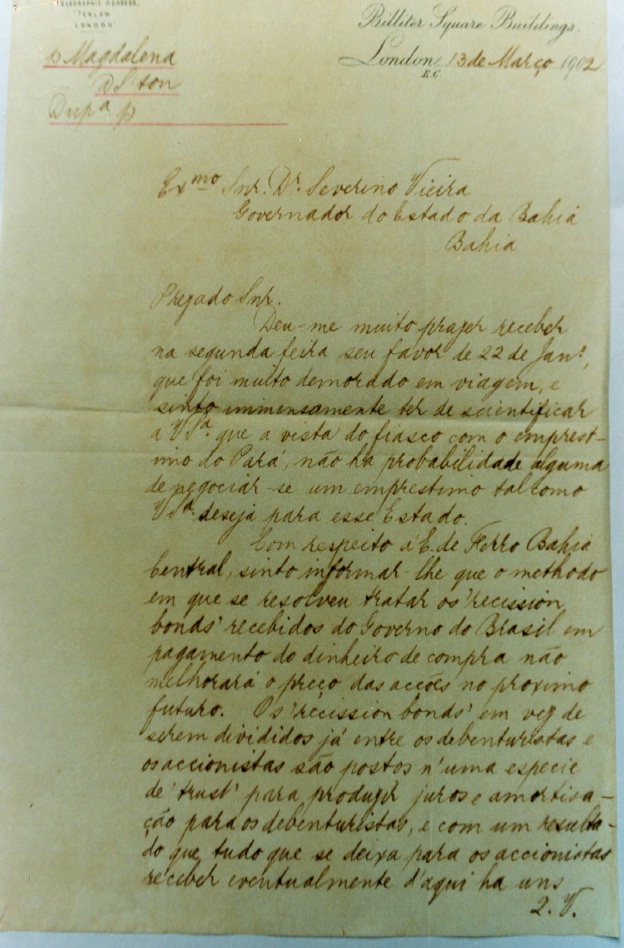 TELEGRAPHIC ADDRESS,
"TERLAW
LONDON"
Billiter Square Buildings.
London 13 de Março 1902
E.C.
p Magdalena
Dupª p
Exmo Snr. Dr. Severino Vieira
Governador do Estado da Bahia
Bahia
Prezado Snr.
Deu-me muito prazer receber
na segunda feira seu favor de 22 de Janº,
que foi muito demorado em viagem, e
sinto immensamente ter de scientificar
a V Sª. que a vista do fiasco com o emprest-
imo do Pará, não ha probabilidade alguma
de negociar-se um emprestimo tal como
V Sª. deseja para esse Estado.
Com respeito á E. de Ferro Bahia
Central, sinto informar-lhe que o methodo
em que se resolveu tratar os 'recission
bonds' recebidos do Governo do Brasil em
pagamento do dinheiro de compra não
melhorará o preço das acções no proximo
futuro. Os 'recission bonds' em vez de
serem divididos já entre os debenturistas e
os accionistas são postos n'uma especie
de 'trust' para produzir juros e amortisa-
ção para os debenturistas, e com um resulta-
do que tudo que se deixa para os accionistas
receber eventualmente d'aqui ha uns
2. V.